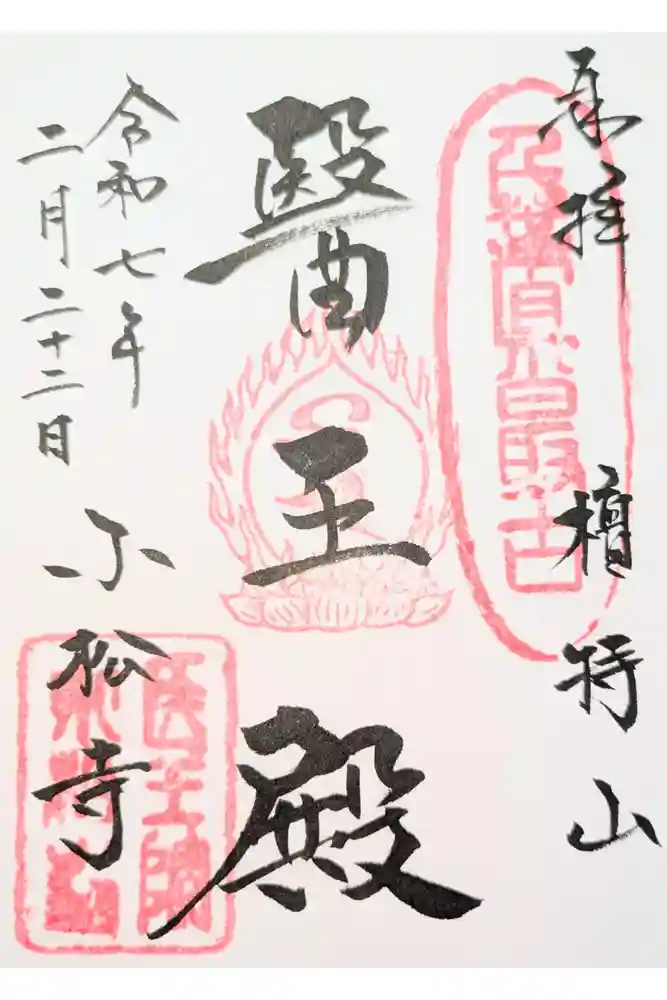 奉拝 檀特山
醫王殿
令和七年
二月二十二日
小松寺